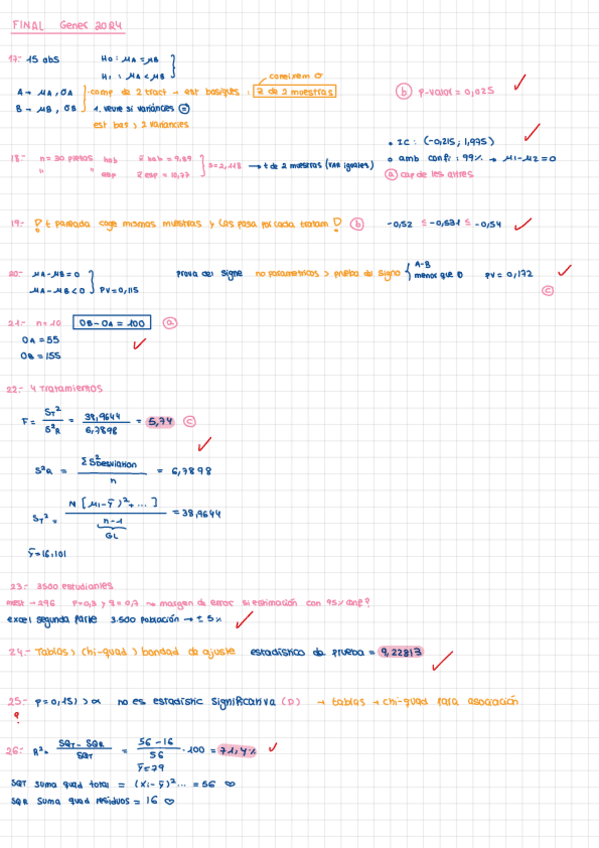 FINAL Gener 2024
17:- 15 obs H0: μA = μB
H1: μA < μB
coneixem σ
A → μA, σA comp de 2 tract → est bàsiques: z de 2 muestras (b) p-valor = 0,025
B → μB, σB 1. veure si variàncies =
est bas > 2 variancies
• IC: (-0,215; 1,975)
18:- n = 30 bab x̄ bab = 9,89 S = 2,118 → t de 2 muestras (VAR iguales) • amb conf: 99% → μ1-μ2 = 0
" " esp x̄ esp = 10,77 (a) cap de les altres
19:- ! t pareada coge mismas muestras y las pasa por cada tratam ! (b) -0,52 ≤ -0,531 ≤ -0,54
20:- μA - μB = 0 Prova del signe no parametricos > prueba de signo A-B
μA - μB < 0 PV = 0,115 menor que 0 PV = 0,172
(c)
21:- n = 10 σB - σA = 100 (a)
σA = 55
σB = 155
22:- 4 tratamientos
F = ST² / S²R = 38,9644 / 6,7898 = 5,74 (c)
S²R = ΣS²desviation / n = 6,7898
ST² = N [(μ1-ȳ)² + ...] / n-1 = 38,9644
GL
ȳ = 16,101
23:- 3500 estudiantes
mest → 296 P=0,3 y q = 0,7 → margen de error si estimación con 95% conf?
excel segunda parte 3.500 población → ± 5%
24:- Tablas > Chi-quad > bondad de ajuste estadístico de prueba = 9,22813
25:- P = 0,151 > α no es estadístic significativa (D) → tablas → chi-quad para asociación
?
26:- R² = SQT - SQR / SQT = 56 - 16 / 56 · 100 = 71,4%
ȳ = 79
SQT suma quad total = (xi - ȳ)² ... = 56 ♡
SQR suma quad residuos = 16 ♡